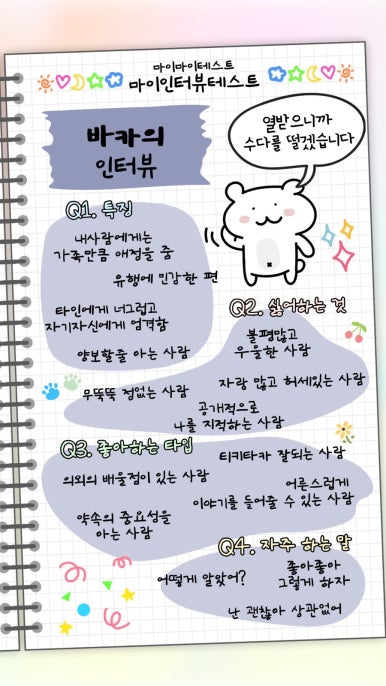 마이마이테스트
마이인터뷰테스트
바카의
인터뷰
열받으니까
수다를 떨겠습니다
Q1. 특징
내사람에게는
가족만큼 애정을 줌
유행에 민감한 편
타인에게 너그럽고
자기자신에게 엄격함
양보할줄 아는 사람
Q2. 싫어하는 것
불평많고
우울한 사람
무뚝뚝 정없는 사람
자랑 많고 허세있는 사람
공개적으로
나를 지적하는 사람
Q3. 좋아하는 타입
티키타카 잘되는 사람
의외의 배울점이 있는 사람
어른스럽게
이야기를 들어줄 수 있는 사람
약속의 중요성을
아는 사람
Q4. 자주 하는 말
어떻게 알았어?
좋아좋아
그렇게 하자
난 괜찮아 상관없어